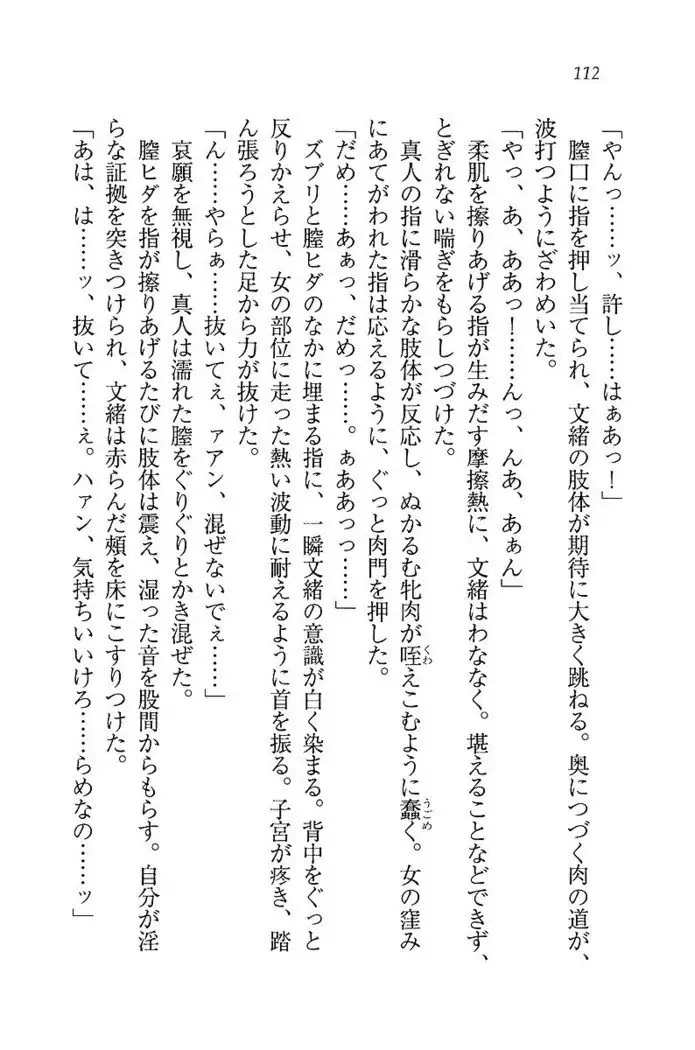 112
「やんっ……ッ、許し……はぁあっ！」
膣口に指を押し当てられ、文緒の肢体が期待に大きく跳ねる。奥につづく肉の道が、
波打つようにざわめいた。
「やっ、あ、ああっ！……んっ、んあ、あぁん」
柔肌を擦りあげる指が生みだす摩擦熱に、文緒はわななく。堪えることなどできず、
とぎれない喘ぎをもらしつづけた。
真人の指に滑らかな肢体が反応し、ぬかるむ牝肉が咥えこむように蠢く。女の窪み
にあてがわれた指は応えるように、ぐっと肉門を押した。
「だめ……あぁっ、だめっ……。ぁああっっ……」
ズブリと膣ヒダのなかに埋まる指に、一瞬文緒の意識が白く染まる。背中をぐっと
反りかえらせ、女の部位に走った熱い波動に耐えるように首を振る。子宮が疼き、踏
ん張ろうとした足から力が抜けた。
「ん……やらぁ……抜いてぇ、ァアン、混ぜないでぇ……」
哀願を無視し、真人は濡れた膣をぐりぐりとかき混ぜた。
膣ヒダを指が擦りあげるたびに肢体は震え、湿った音を股間からもらす。自分が淫
らな証拠を突きつけられ、文緒は赤らんだ頬を床にこすりつけた。
「あは、は……ッ、抜いて……ぇ。ハァン、気持ちいいけろ……らめなの……ッ」